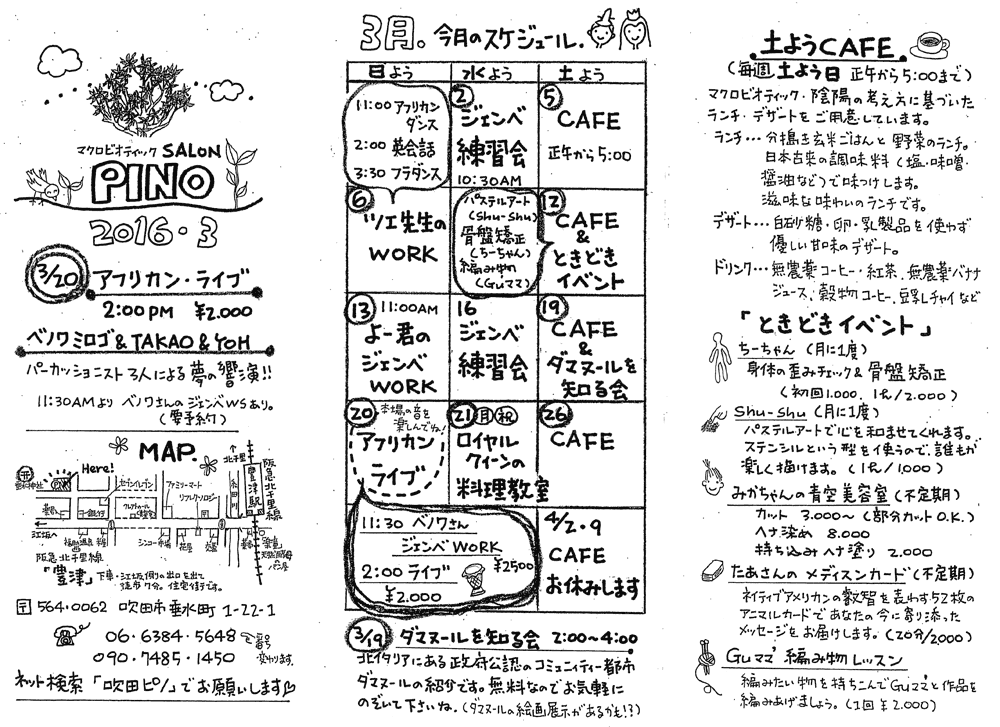 マクロビオティック SALON
PINO
2016・3
3/20 アフリカン・ライブ
2:00PM ¥2.000
ベノワミロゴ&TAKAO&YOH
パーカッショニスト3人による夢の響演!!
11:30AMより ベノワさんのジェンベWSあり。
(要予約)
MAP.
Here!
セブンイレブン
ファミリーマート
リフレクソロジー
阪急北千里線
豊津駅
北千里
江坂へ
阪急北千里線
「豊津」下車・江坂側の出口を出て
徒歩7分。住宅街です。
〒564-0062 吹田市垂水町 1-22-1
06・6384・5648
090・7485・1450
番号変わります。
ネット検索「吹田ピノ」でお願いします
3月. 今月のスケジュール.
日よう 水よう 土よう
11:00 アフリカンダンス
2:00 英会話
3:30 フラダンス
2 ジェンベ
練習会
10:30AM
5 CAFE
正午から5:00
6 ツエ先生の
WORK
パステルアート
(shu-shu)
骨盤矯正
(ちーちゃん)
編み物
(Guママ)
12 CAFE
&
ときどき
イベント
13 11:00AM
よー君の
ジェンベ
WORK
16
ジェンベ
練習会
19
CAFE
&
ダマヌールを
知る会
20 本場の音を
楽しんでね!
アフリカン
ライブ
21 月 祝
ロイヤル
クィーンの
料理教室
26
CAFE
11:30 ベノワさん
ジェンベWORK
¥2500
2:00 ライブ
¥2.000
4/2・9
CAFE
お休みします
3/19 ダマヌールを知る会 2:00~4:00
北イタリアにある政府公認のコミュニティー都市
ダマヌールの紹介です。無料なのでお気軽に
のぞいて下さいね.(ダマヌールの絵画展示があるかも!?)
土ようCAFE.
(毎週 土よう日 正午から5:00まで)
マクロビオティック・陰陽の考え方に基づいた
ランチ・デザートをご用意しています。
ランチ…分搗き玄米ごはんと野菜のランチ。
日本古来の調味料(塩・味噌・
醤油など)で味つけします。
滋味な味わいのランチです。
デザート…白砂糖・卵・乳製品を使わず
優しい甘味のデザート。
ドリンク…無農薬コーヒー・紅茶、無農薬バナナ
ジュース、穀物コーヒー、豆乳チャイなど
「ときどきイベント」
ちーちゃん (月に1度)
身体の歪みチェック&骨盤矯正
(初回1.000、1h/2.000)
Shu-shu (月に1度)
パステルアートで心を和ませてくれます。
ステンシルという型を使うので、誰もが
楽しく描けます。(1h/1,000)
みかちゃんの青空美容室(不定期)
カット 3.000~(部分カットO.K.)
ヘナ染め 8.000
持ち込みヘナ塗り 2.000
たあさんのメディスンカード(不定期)
ネイティブアメリカンの叡智を表わす52枚の
アニマルカードであなたの今に寄り添った
メッセージをお届けします。(20分/2000)
Guママ 編み物レッスン
編みたい物を持ちこんでGuママと作品を
編みあげましょう。(1回¥2.000)